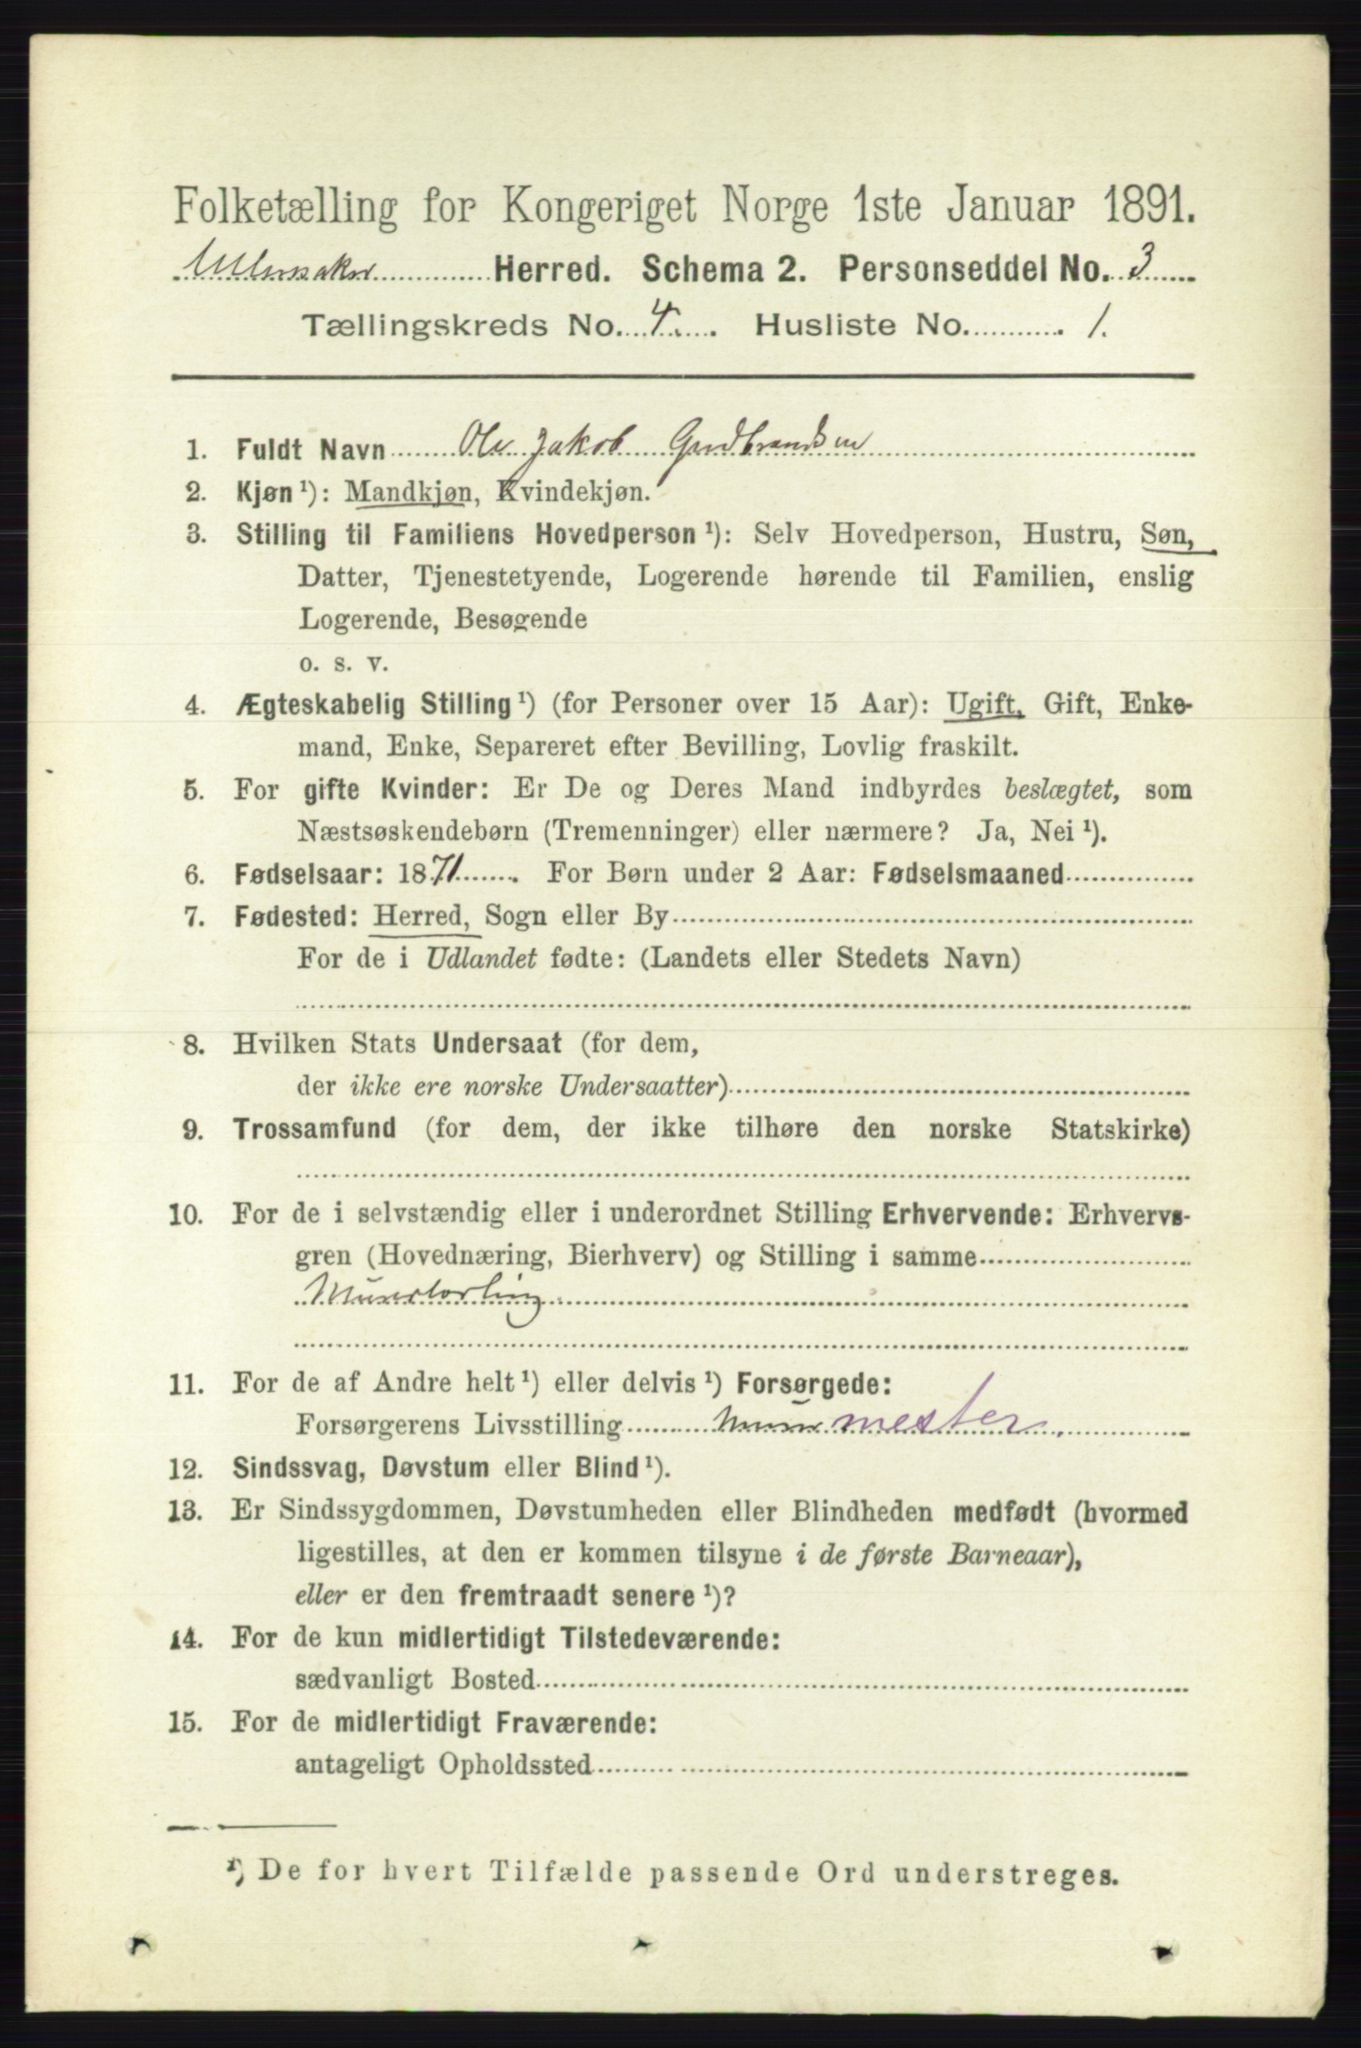 Folketælling for Kongeriget Norge 1ste Januar 1891.
Ullensaker Herred. Schema 2. Personseddel No. 3
Tællingskreds No. 4. Husliste No. 1.
1. Fuldt Navn Ole Jakob Gudbrandsen
2. Kjøn ¹): Mandkjøn, Kvindekjøn.
3. Stilling til Familiens Hovedperson ¹): Selv Hovedperson, Hustru, Søn,
Datter, Tjenestetyende, Logerende hørende til Familien, enslig
Logerende, Besøgende
o. s. v.
4. Ægteskabelig Stilling ¹) (for Personer over 15 Aar): Ugift, Gift, Enke-
mand, Enke, Separeret efter Bevilling, Lovlig fraskilt.
5. For gifte Kvinder: Er De og Deres Mand indbyrdes beslægtet, som
Næstsøskendebørn (Tremenninger) eller nærmere? Ja, Nei ¹).
6. Fødselsaar: 1871. For Børn under 2 Aar: Fødselsmaaned
7. Fødested: Herred, Sogn eller By
For de i Udlandet fødte: (Landets eller Stedets Navn)
8. Hvilken Stats Undersaat (for dem,
der ikke ere norske Undersaatter)
9. Trossamfund (for dem, der ikke tilhøre den norske Statskirke)
10. For de i selvstændig eller i underordnet Stilling Erhvervende: Erhvervs-
gren (Hovednæring, Bierhverv) og Stilling i samme
Murerlærling
11. For de af Andre helt ¹) eller delvis ¹) Forsørgede:
Forsørgerens Livsstilling Murermester.
12. Sindssvag, Døvstum eller Blind ¹).
13. Er Sindssygdommen, Døvstumheden eller Blindheden medfødt (hvormed
ligestilles, at den er kommen tilsyne i de første Barneaar),
eller er den fremtraadt senere ¹)?
14. For de kun midlertidigt Tilstedeværende:
sædvanligt Bosted
15. For de midlertidigt Fraværende:
antageligt Opholdssted
¹) De for hvert Tilfælde passende Ord understreges.